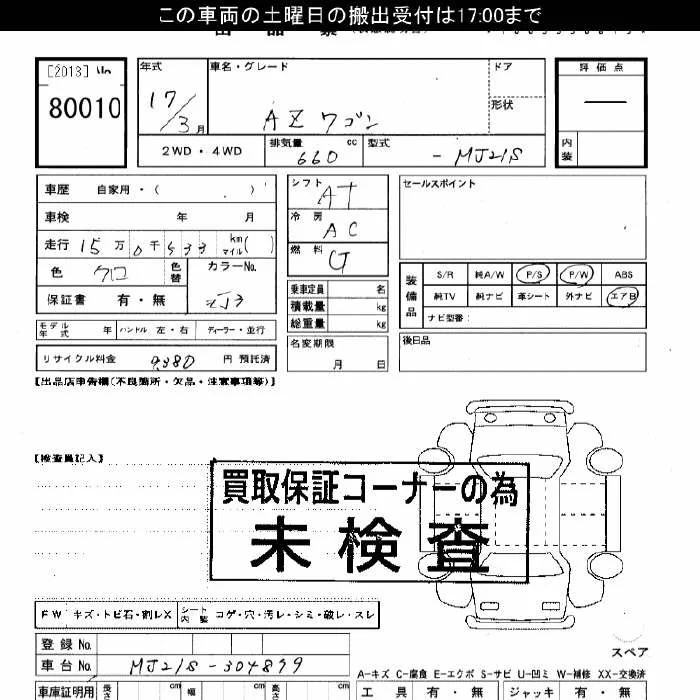 この車両の土曜日の搬出受付は17:00まで
[2013]
80010
年式
車名・グレード
ドア
評価点
17/3月
AZワゴン
形状
—
2WD・4WD
排気量 660 cc
型式 -MJ21S
内装
車歴 自家用・( )
シフト AT
セールスポイント
車検 年 月
冷房 AC
走行 15万0千533 km マイル( )
燃料 G
色 クロ 色替
カラーNo. ZJ3
保証書 有・無
乗車定員 名
積載量 kg
総重量 kg
装備品
S/R 純A/W P/S P/W ABS
純TV 純ナビ 革シート 外ナビ エアB
ナビ型番:
モデル年式 年 ハンドル 左・右 ディーラー・並行
名変期限 月 日
後日品
リサイクル料金 9,380 円 預託済
【出品店申告欄(不良箇所・欠品・注意事項等)】
【検査員記入】
買取保証コーナーの為
未検査
FW キズ・トビ石・割レX
シート内装 コゲ・穴・汚レ・シミ・破レ・スレ
登録 No.
スペア
車台 No. MJ21S-304899
A-キズ C-腐食 E-エクボ S-サビ U-凹ミ W-補修 XX-交換済
車庫証明用 長さ cm 幅 cm 高さ cm
工具 有・無 ジャッキ 有・無